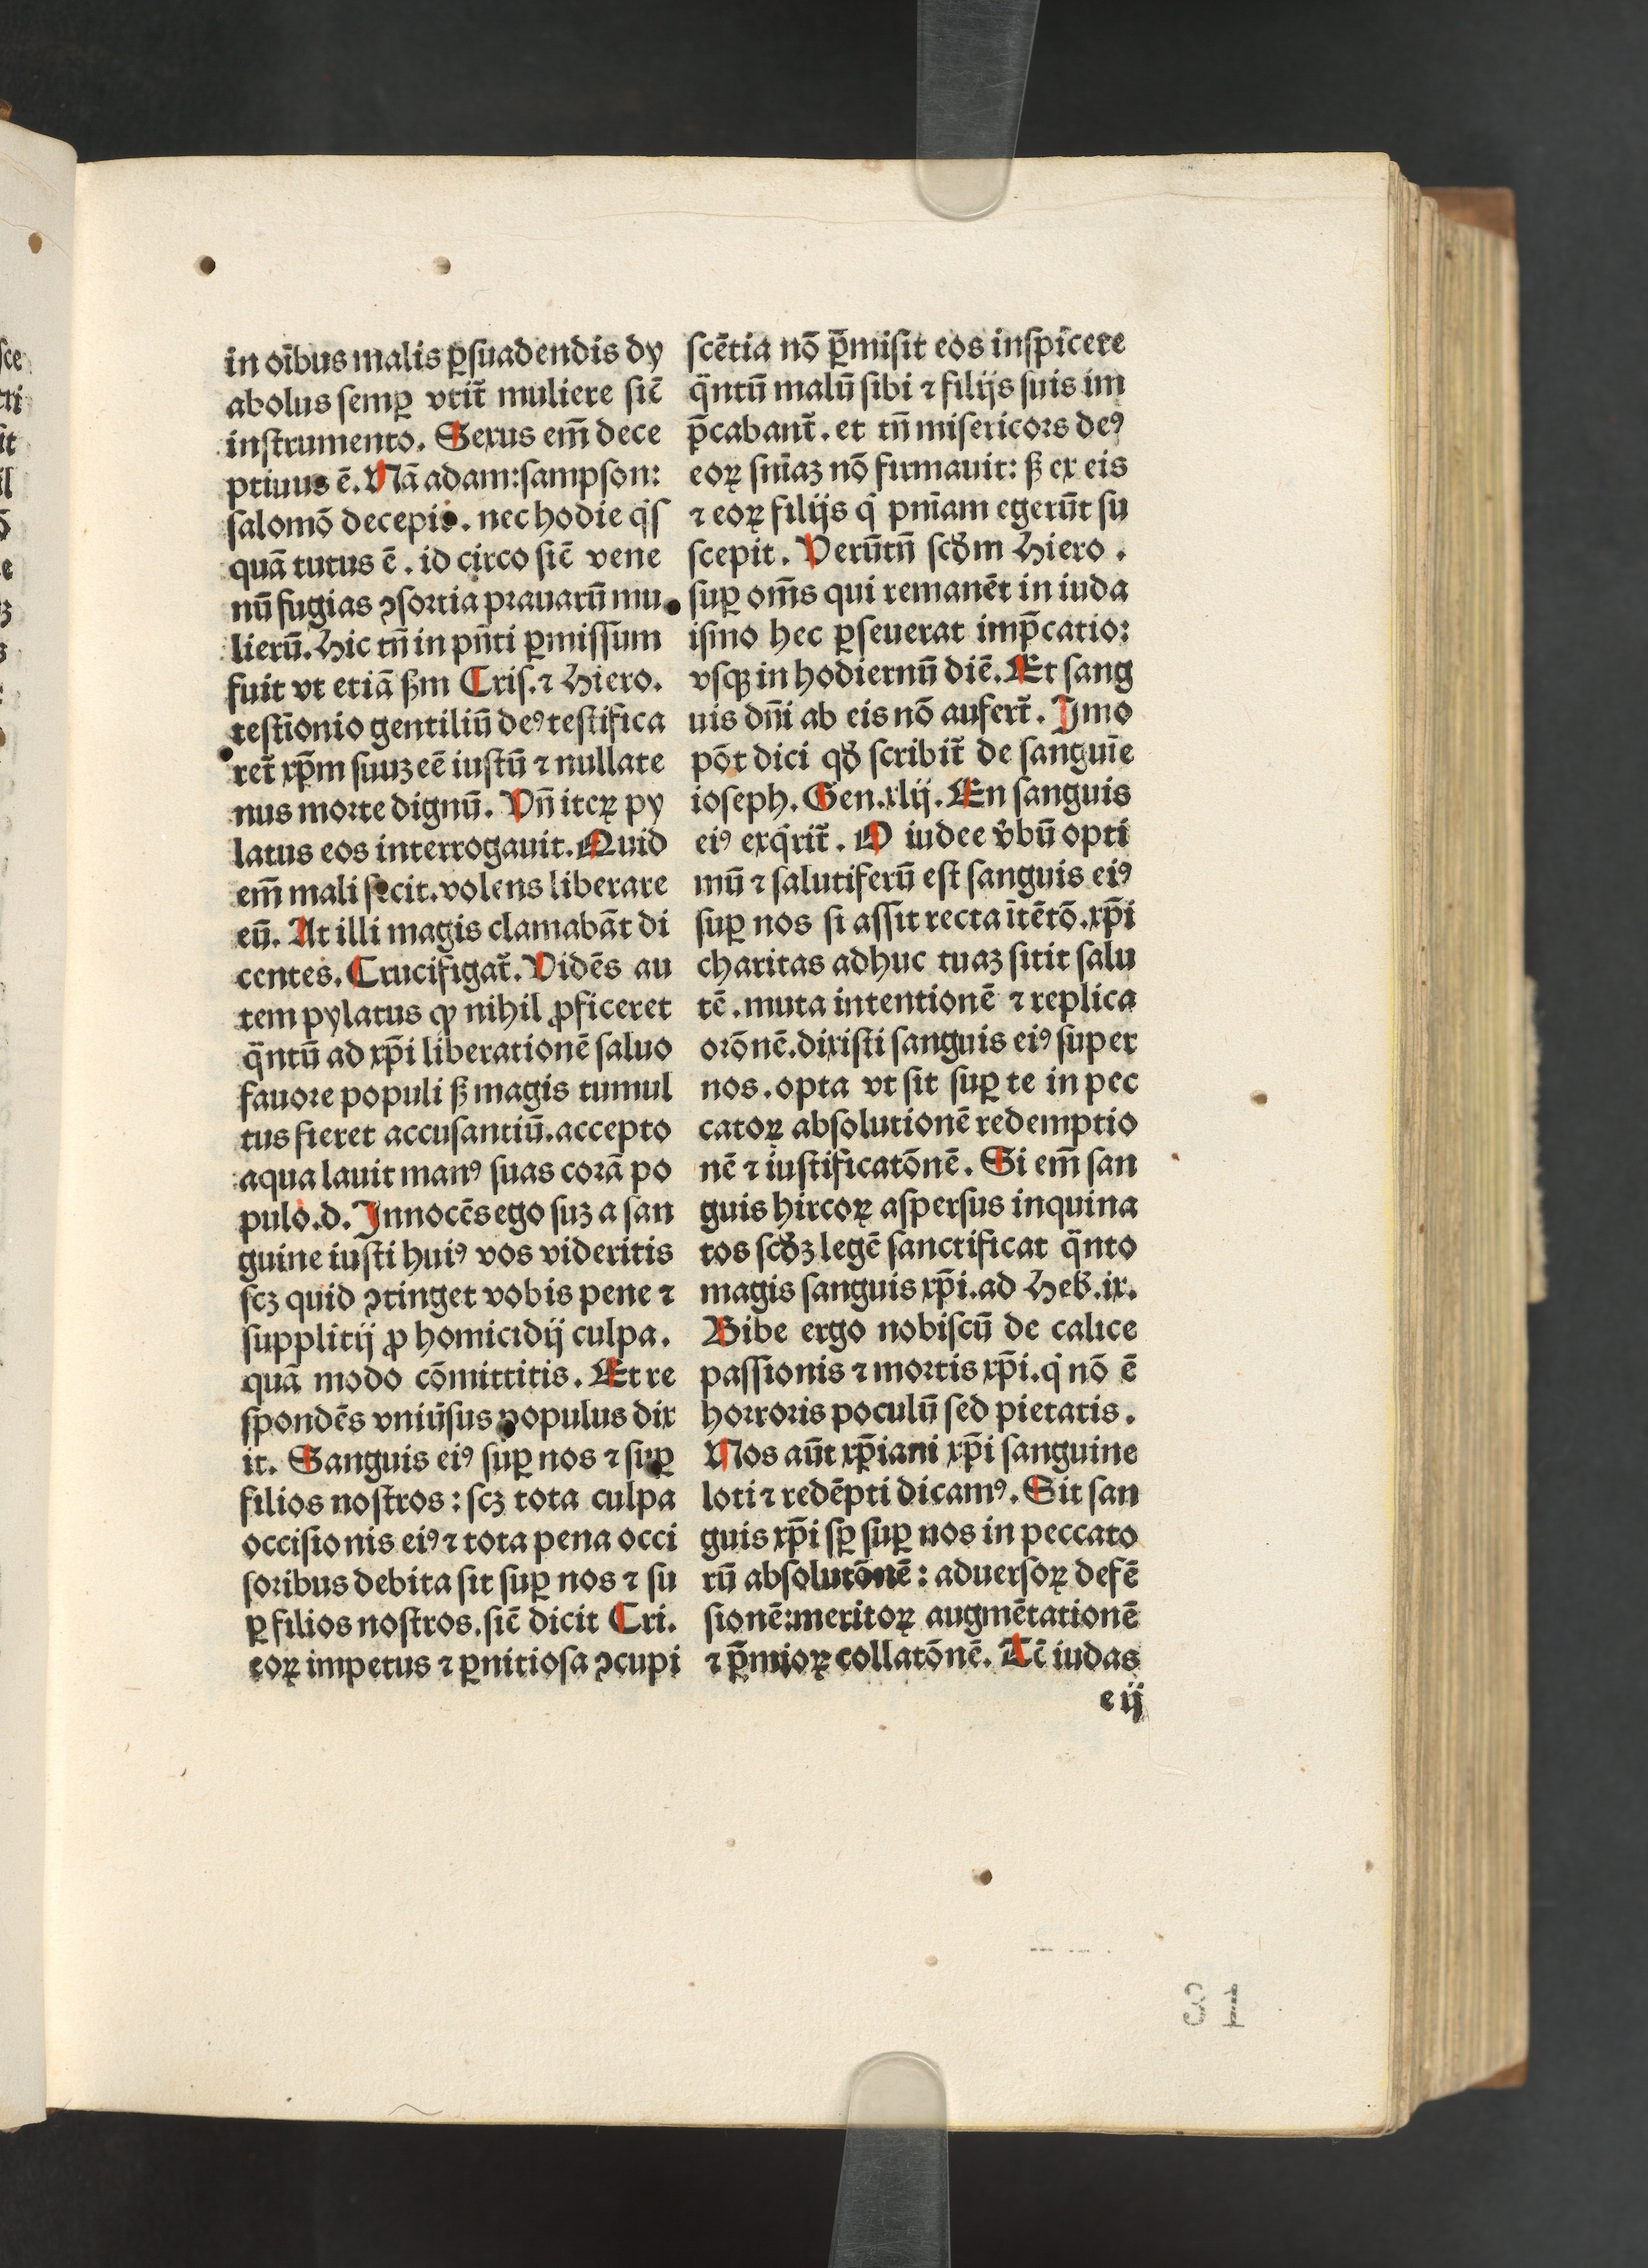 in oībus malis ꝑsuadendis dy
abolus semꝑ vtit᷑ muliere sic̄
instrumento. Sexus em̄ dece
ptiuus ē. Nā adam: sampson:
salomō decepit. nec hodie q̇sſ
quā tutus ē. id circo sic̄ vene
nū fugias ꝯsortia prauarū mu
lierū. Hic tn̄ in pn̄ti ꝑmissum
fuit vt etiā ẜm Cris. ⁊ Hiero.
testīonio gentiliū deꝰ testifica
ret᷑ xp̄m suuꝫ eē iustū ⁊ nullate
nus morte dignū. Vn̄ iteꝝ py
latus eos interrogauit. Quid
em̄ mali fecit. volens liberare
eū. At illi magis clamabāt di
centes. Crucifigat᷑. Vidēs au
tem pylatus ꝙ nihil ꝓficeret
qͣntū ad xp̄i liberationē saluo
fauore populi ẜ magis tumul
tus fieret accusantiū. accepto
aqua lauit manꝰ suas corā po
pulo. d. Innocēs ego suꝫ a san
guine iusti huiꝰ vos videritis
scꝫ quid ꝯtinget vobis pene ⁊
supplitij ꝓ homicidij culpa.
quā modo cōmittitis. Et re
spondēs vniūsus populus dix
it. Sanguis eiꝰ suꝑ nos ⁊ suꝑ
filios nostros: scꝫ tota culpa
occisionis eiꝰ ⁊ tota pena occi
soribus debita sit suꝑ nos ⁊ su
ꝑ filios nostros. sic̄ dicit Cri.
eoꝝ impetus ⁊ ꝑnitiosa ꝯcupi
scētia nō p̄misit eos inspicere
qͣntū malū sibi ⁊ filijs suis im
p̄cabant᷑. et tn̄ misericors deꝰ
eoꝝ sniāꝫ nō firmauit: ẜ ex eis
⁊ eoꝝ filijs q̇ pniam egerūt su
scepit. Verūtn̄ scđm Hiero.
suꝑ om̄s qui remanēt in iuda
ismo hec ꝑseuerat imp̄catio:
vsqꝫ in hodiernū diē. Et sang
uis dn̄i ab eis nō aufert᷑. Imo
pōt dici qđ scribit᷑ de sanguīe
ioseph. Gen. xlij. En sanguis
eiꝰ exq̇rit᷑. O iudee v̓bū opti
mū ⁊ salutiferū est sanguis eiꝰ
suꝑ nos si assit recta ītētō. xp̄i
charitas adhuc tuaꝫ sitit salu
tē. muta intentionē ⁊ replica
orōnē. dixisti sanguis eiꝰ super
nos. opta vt sit suꝑ te in pec
catoꝝ absolutionē redemptio
nē ⁊ iustificatōnē. Si em̄ san
guis hircoꝝ aspersus inquina
tos scđꝫ legē sanctificat qͣnto
magis sanguis xp̄i. ad Heb̄. ix.
Bibe ergo nobiscū de calice
passionis ⁊ mortis xp̄i. q̇ nō ē
horroris poculū sed pietatis.
Nos aūt xp̄iani xp̄i sanguine
loti ⁊ redēpti dicamꝰ. Sit san
guis xp̄i sꝑ suꝑ nos in peccato
rū absolutōnē: aduersoꝝ defē
sionē: meritoꝝ augmētationē
⁊ p̄mioꝝ collatōnē. Tc̄ iudas
e ij
31